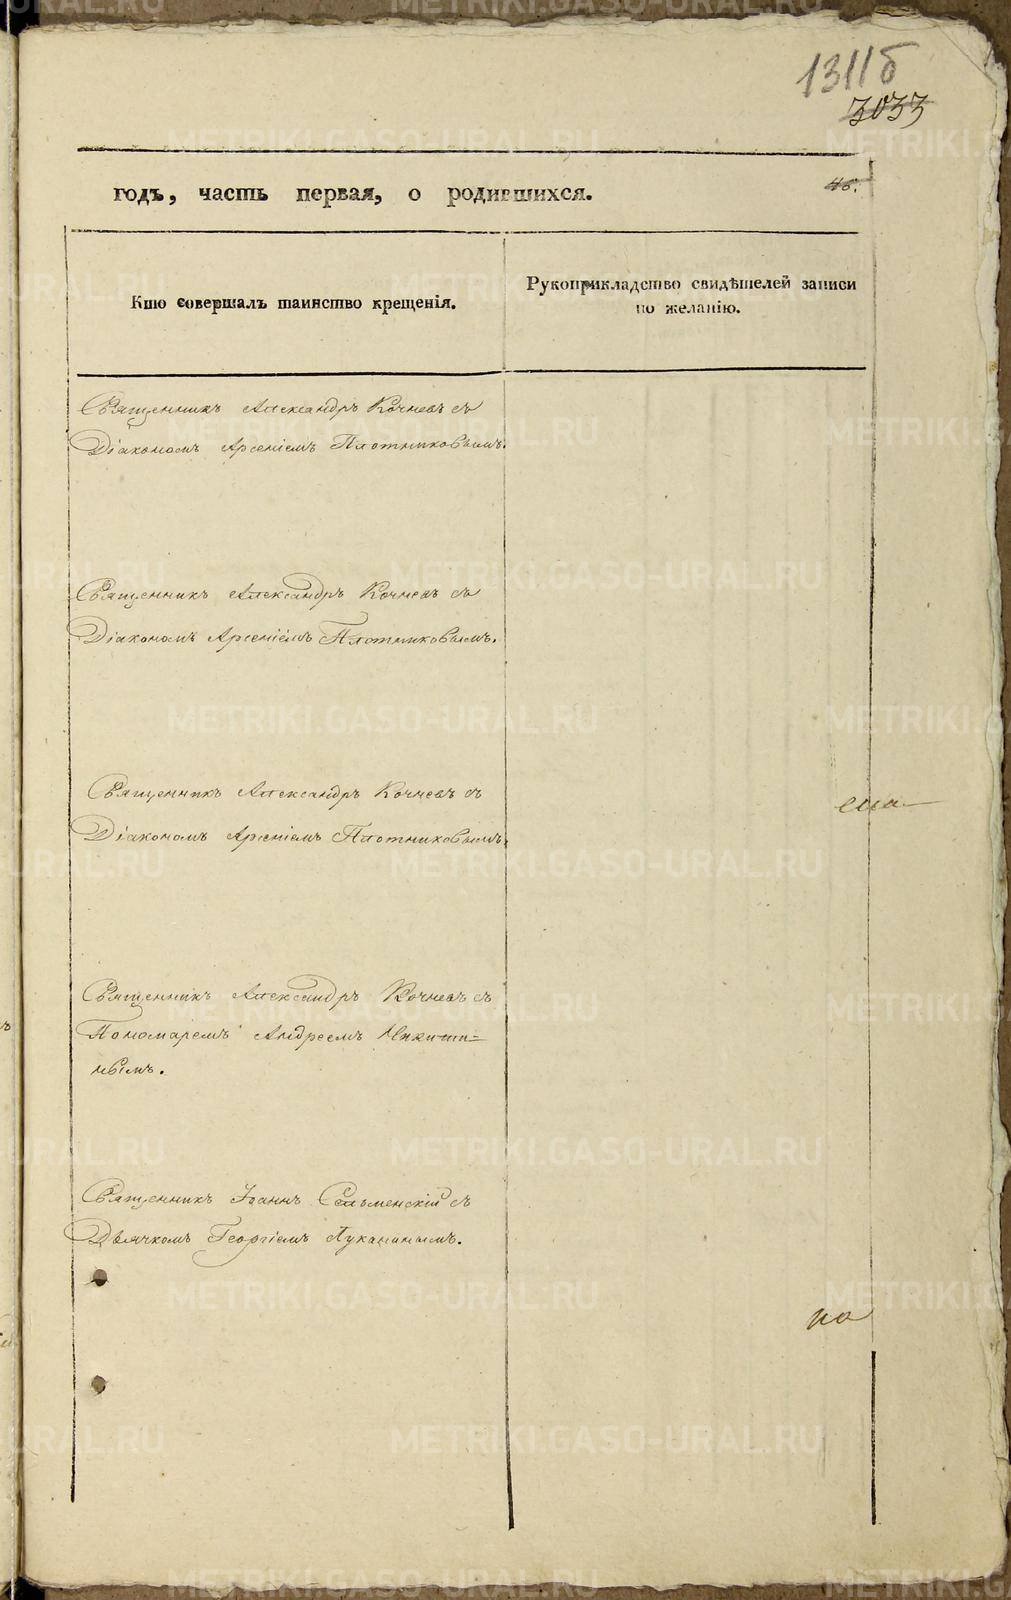 1311б
3033
годъ, часть первая, о родившихся.
46.
Кто совершалъ таинство крещенія.
Рукоприкладство свидѣтелей записи
по желанію.
Священникъ Александръ Кочневъ съ
Діакономъ Арсеніемъ Плотниковымъ.
Священникъ Александръ Кочневъ съ
Діакономъ Арсеніемъ Плотниковымъ.
Священникъ Александръ Кочневъ съ
Діакономъ Арсеніемъ Плотниковымъ.
Священникъ Александръ Кочневъ съ
Пономаремъ Андреемъ Никити=
нымъ.
Священникъ Іоаннъ съ
Дьячкомъ Георгіемъ Луканинымъ.
по
METRIKI.GASO-URAL.RU